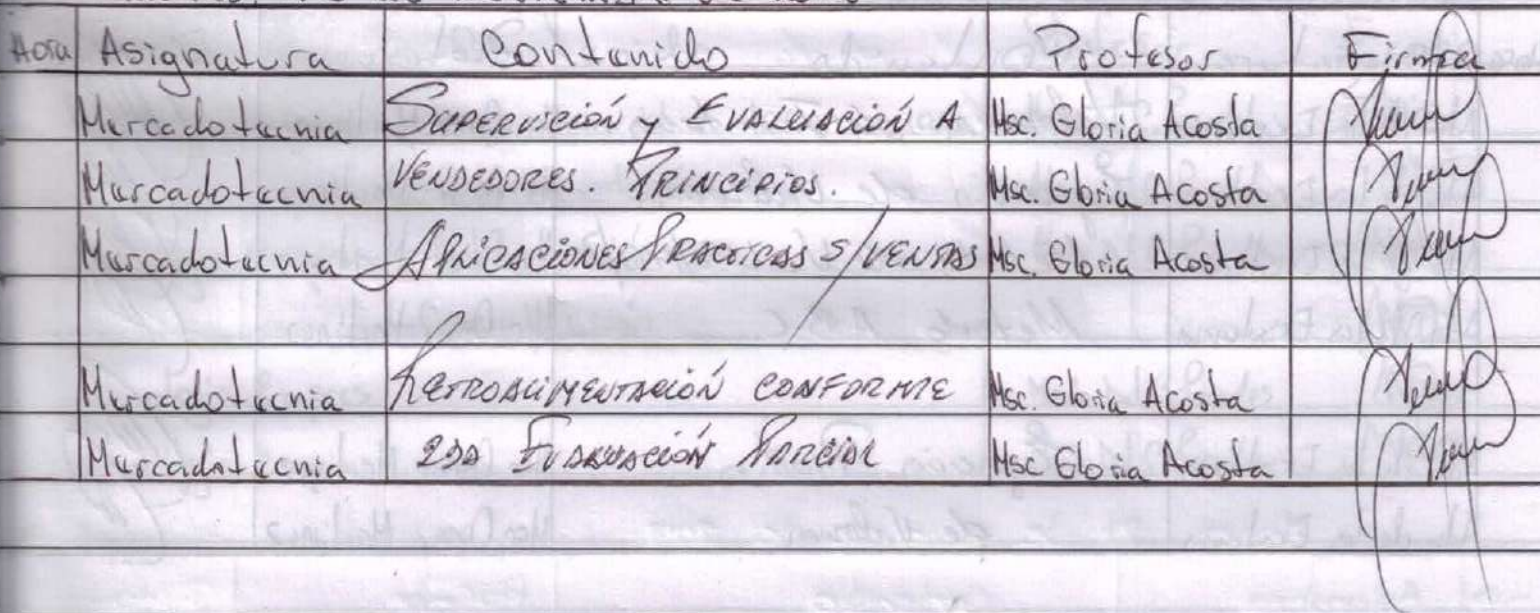 Hora Asignatura Contenido Profesor Firma
Mercadotecnia SUPERVICIÓN y EVALUACIÓN A Msc. Gloria Acosta
Mercadotecnia VENDEDORES. PRINCIPIOS. Msc. Gloria Acosta
Mercadotecnia APLICACIONES PRACTICAS S/VENTAS Msc. Gloria Acosta
Mercadotecnia RETROALIMENTACIÓN CONFORME Msc. Gloria Acosta
Mercadotecnia 2DA EVALUACIÓN PARCIAL Msc Gloria Acosta